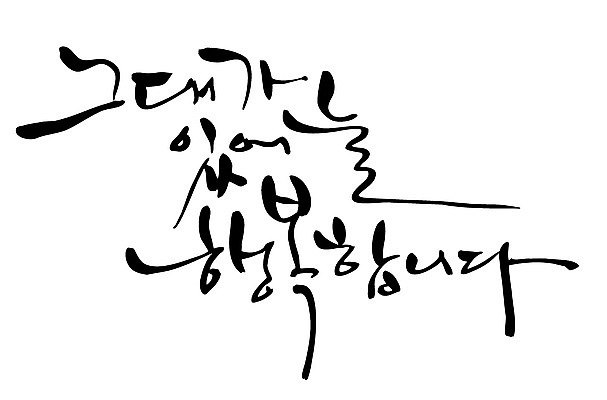 그대가
있어 늘
행복합니다